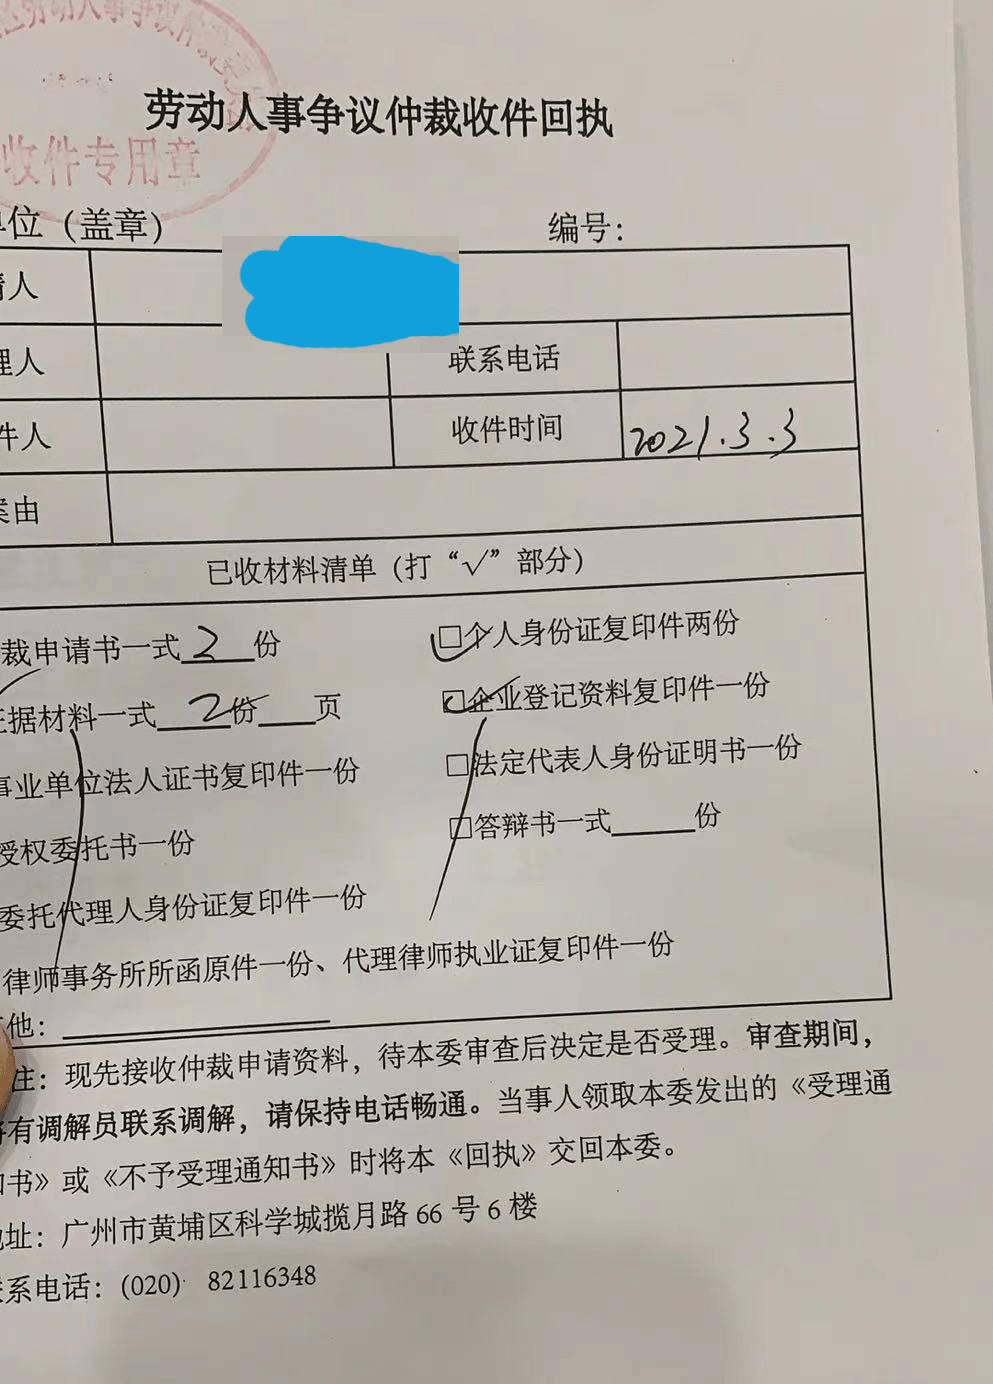 区劳动人事争议仲裁
收件专用章
劳动人事争议仲裁收件回执
单位（盖章） 编号：
请人
理人 联系电话
件人 收件时间 2021.3.3
案由
已收材料清单（打“√”部分）
裁申请书一式2份 □个人身份证复印件两份
证据材料一式2份 页 □企业登记资料复印件一份
事业单位法人证书复印件一份 □法定代表人身份证明书一份
授权委托书一份 □答辩书一式 份
委托代理人身份证复印件一份
律师事务所所函原件一份、代理律师执业证复印件一份
其他：
注：现先接收仲裁申请资料，待本委审查后决定是否受理。审查期间，
将有调解员联系调解，请保持电话畅通。当事人领取本委发出的《受理通
知书》或《不予受理通知书》时将本《回执》交回本委。
地址：广州市黄埔区科学城揽月路 66 号 6 楼
联系电话：(020) 82116348